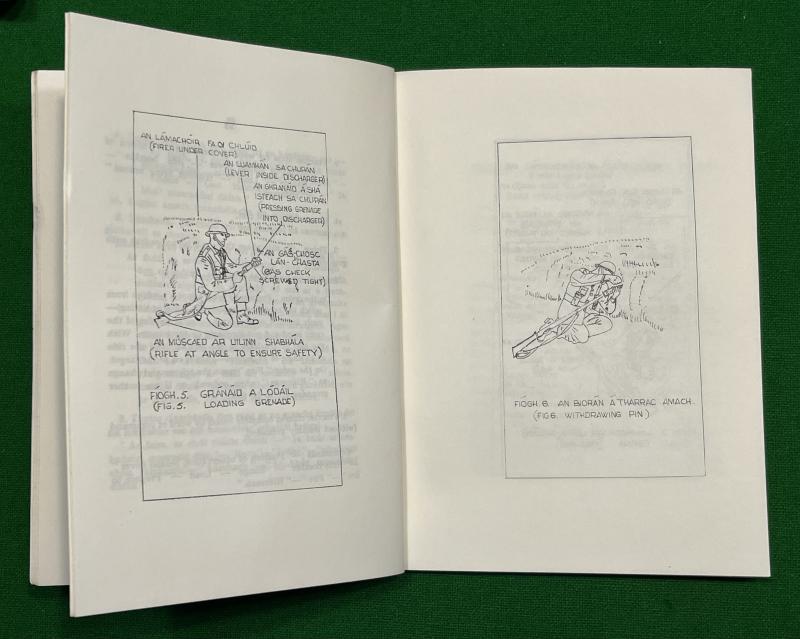 AN LÁMACHÓIR FAOI CHLÚID
(FIRER UNDER COVER)
AN LUAMHÁN SA CHUPÁN
(LEVER INSIDE DISCHARGER)
AN GHRANÁID Á SHÁ
ISTEACH SA CHUPÁN
(PRESSING GRENADE
INTO DISCHARGER)
AN GÁS-CHOSC
LÁN-CHASTA
(GAS CHECK
SCREWED TIGHT)
AN MÚSCAED AR UILINN SHABHÁLA
(RIFLE AT ANGLE TO ENSURE SAFETY)
FÍOGH. 5. GRÁNÁID A LÓDÁIL
(FIG. 5. LOADING GRENADE)
FÍOGH. 6. AN BIORÁN Á THARRAC AMACH.
(FIG 6. WITHDRAWING PIN)